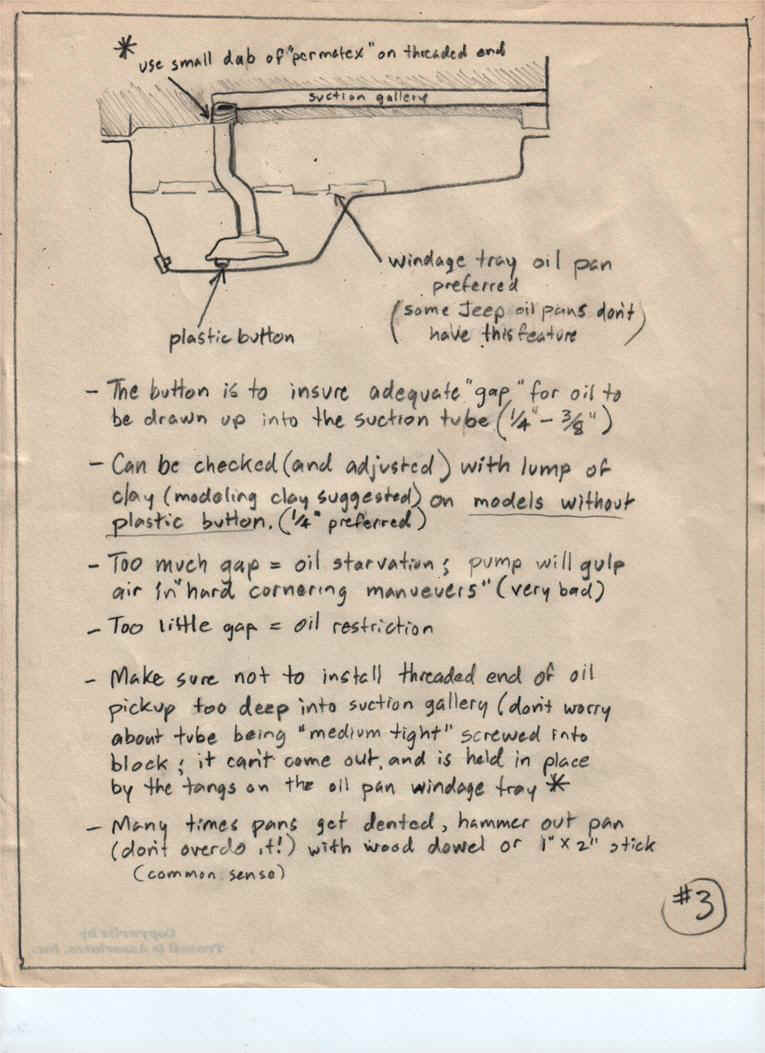 * use small dab of "permatex" on threaded end
suction gallery
windage tray oil pan
preferred
(some Jeep oil pans don't
have this feature)
plastic button
- The button is to insure adequate "gap" for oil to
be drawn up into the suction tube (1/4" - 3/8")
- Can be checked (and adjusted) with lump of
clay (modeling clay suggested) on models without
plastic button. (1/4" preferred)
- Too much gap = oil starvation; pump will gulp
air in "hard cornering manuevers" (very bad)
- Too little gap = oil restriction
- Make sure not to install threaded end of oil
pickup too deep into suction gallery (don't worry
about tube being "medium tight" screwed into
block; it can't come out, and is held in place
by the tangs on the oil pan windage tray *
- Many times pans get dented, hammer out pan
(don't overdo it!) with wood dowel or 1" x 2" stick
(common sense)
#3
Copywrite by
& Associates, Inc.